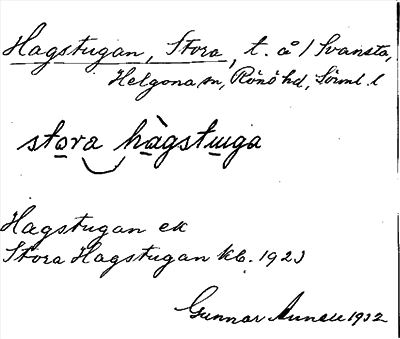 Hagstugan, Stora, t. å / Svansta,
Helgona sn, Rönö hd, Sörml. l
stora hàgstuga
Hagstugan ek
Stora Hagstugan kb. 1923
Gunnar 1932